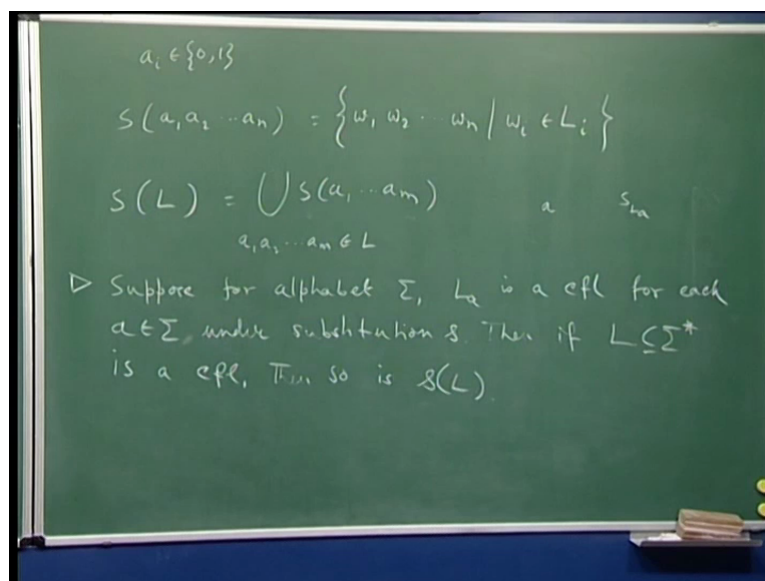 aᵢ ∈ {0,1}
S(a₁a₂ ⋯ aₙ) = {w₁ w₂ ⋯ wₙ / wᵢ ∈ Lᵢ}
S(L) = ⋃ S(a₁ ⋯ aₘ) a S_{La}
a₁a₂ ⋯ aₘ ∈ L
▷ Suppose for alphabet Σ, Lₐ is a cfl for each
a ∈ Σ under substitution s. Then if L ⊆ Σ*
is a cfl, Then so is s(L).